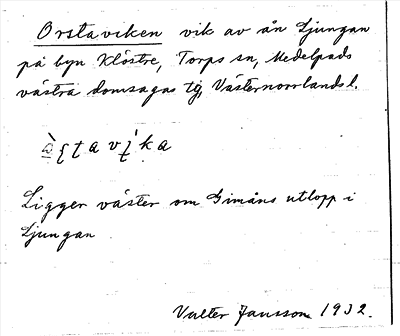 Orstaviken vik av ån Ljungan
på byn Klöstre, Torps sn, Medelpads
västra domsagas tg, Västernorrlands l.
Ligger väster om Gimåns utlopp i
Ljungan
Valter Jansson 1932.